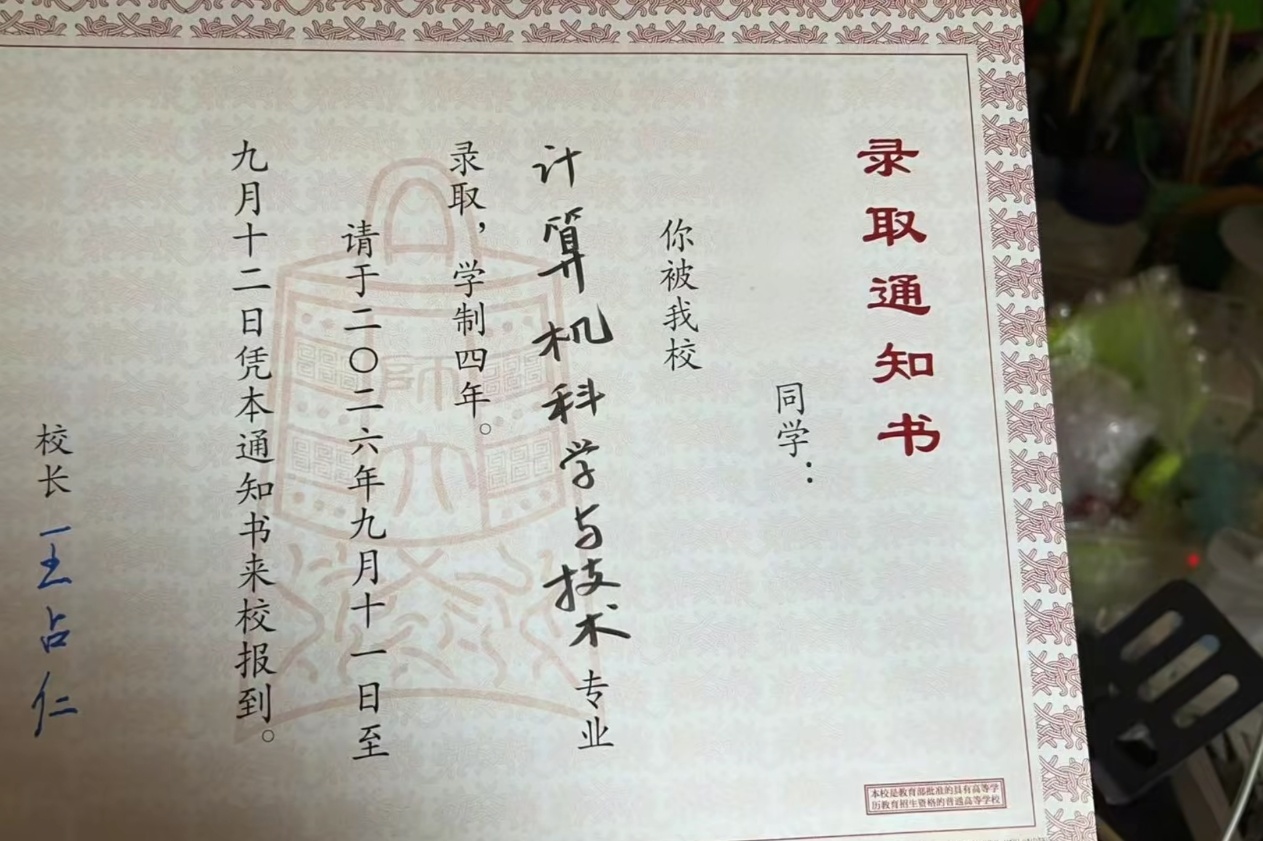 录取通知书
同学：
你被我校
计算机科学与技术专业
录取，学制四年。
请于二〇二六年九月十一日至
九月十二日凭本通知书来校报到。
校长 王占仁
师大
本校是教育部批准的具有高等学
历教育招生资格的普通高等学校